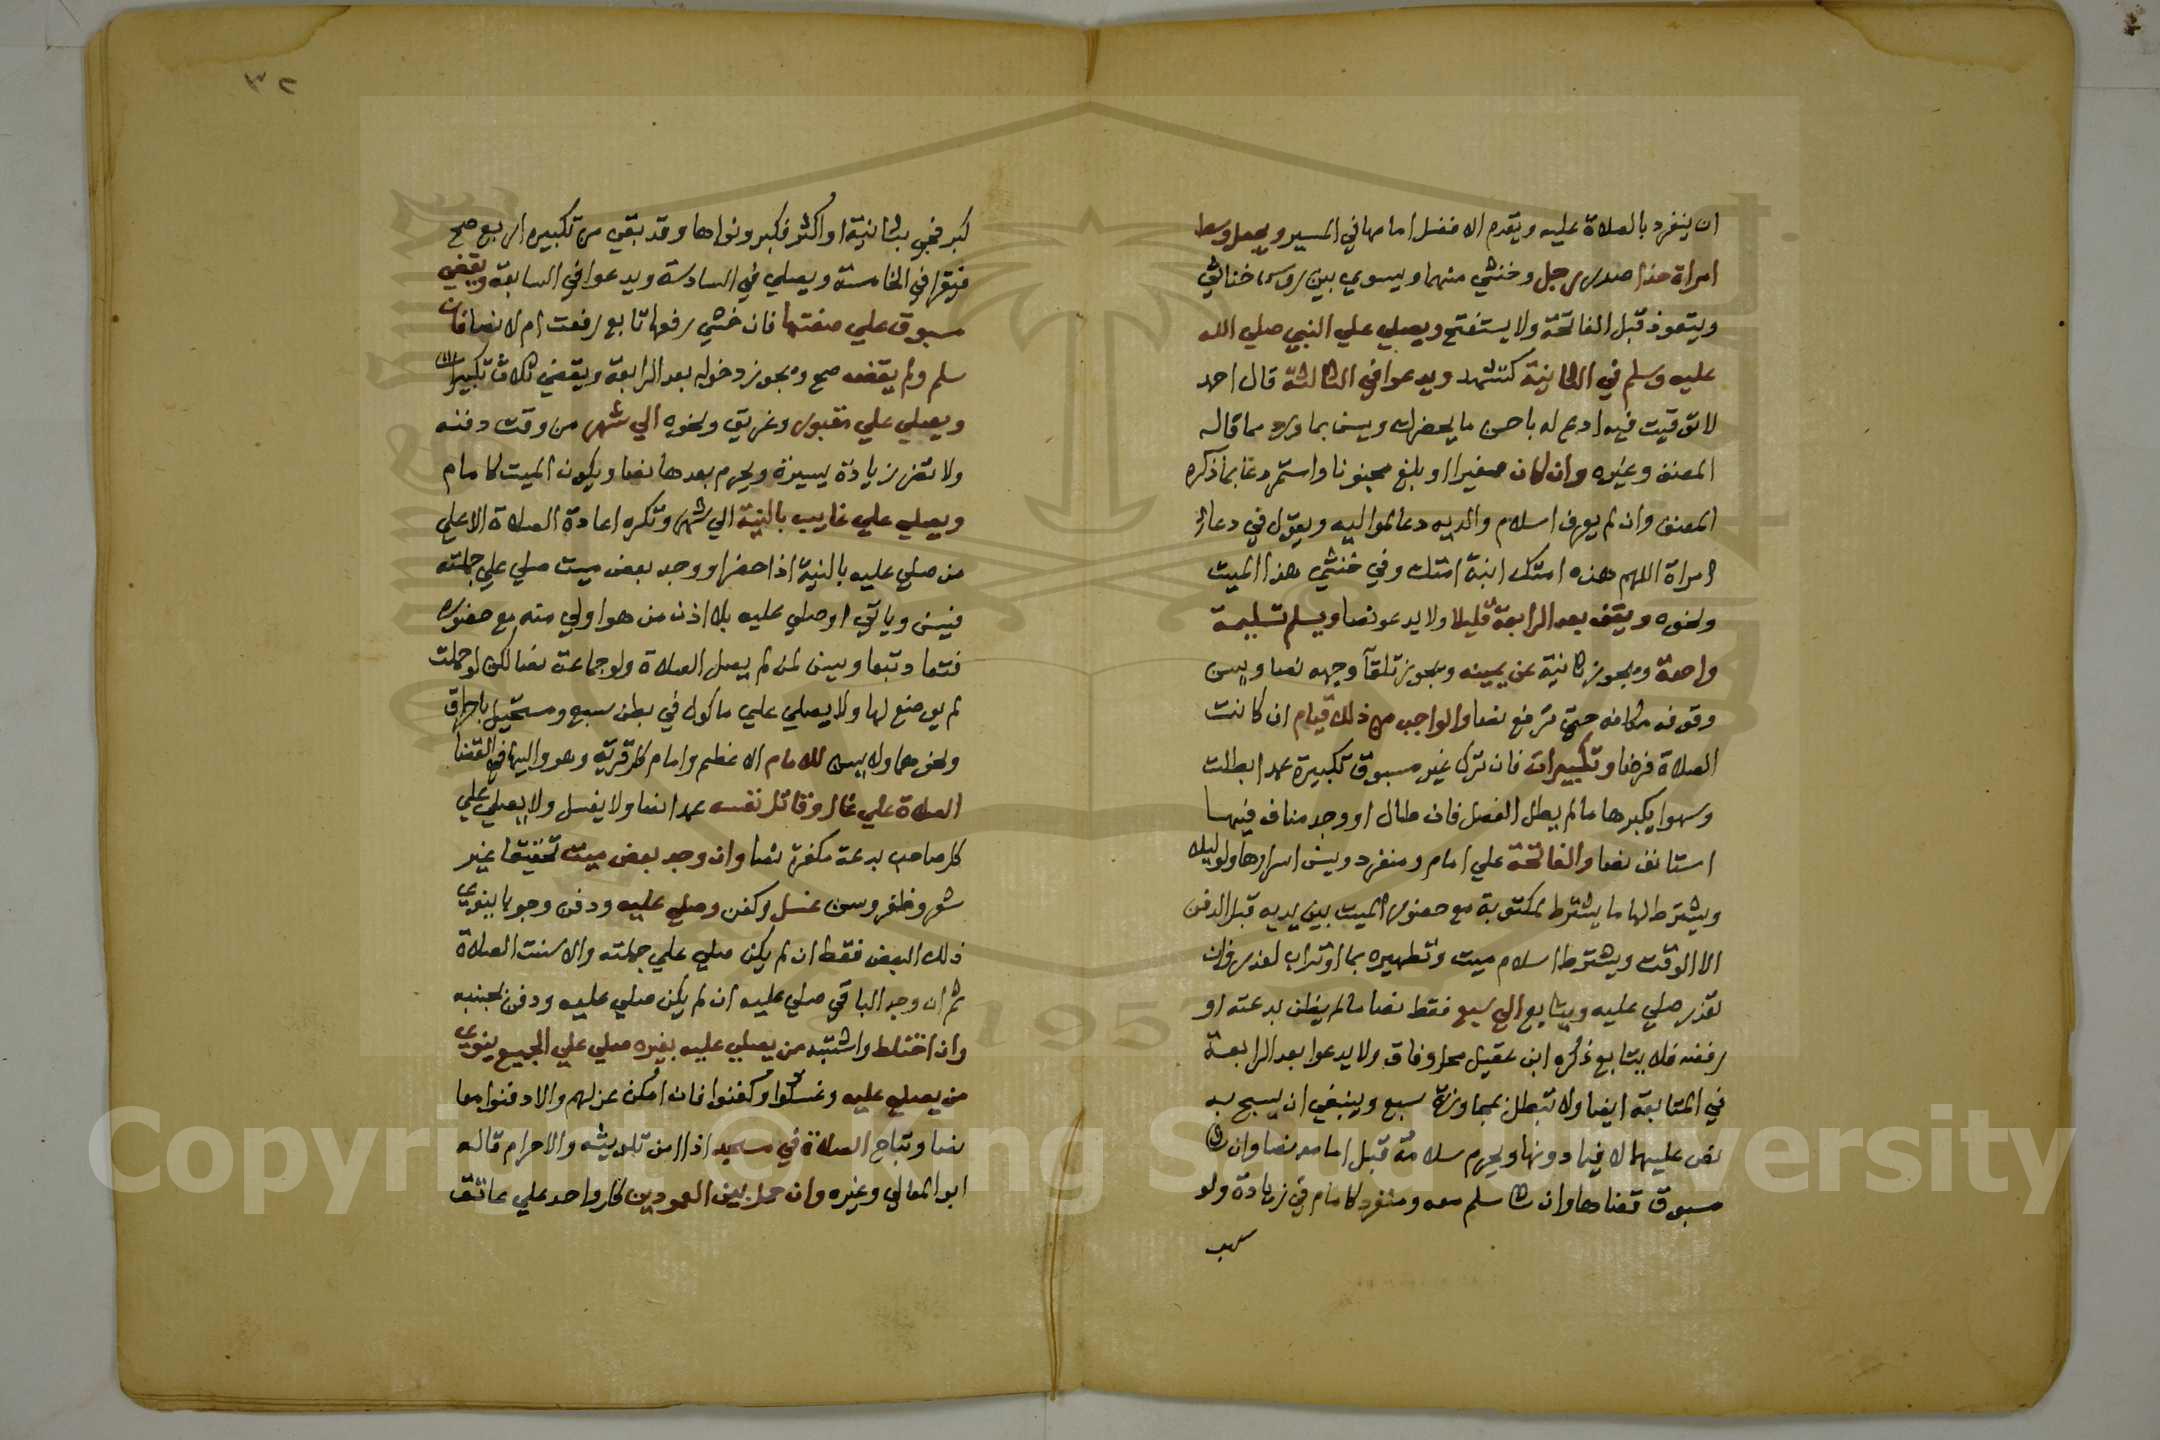 ان ينفرد بالصلاة عليه ويقدم الافضل امامها في المسير ويجعل وسط
امراة حذا صدر رجل وخنثي منهما ويسوي بين روس خناثي
ويتعوذ قبل الفاتحة ولا يستفتح ويصلي علي النبي صلي الله
عليه وسلم في الثانية كتشهد ويدعوا في الثالثة قال احمد
لا توقيت فيه ادع له باحسن ما يحضرك ويسن بما ورد مما قاله
المصنف وغيره وان كان صغيرا او بلغ مجنونا واستمر دعا بما ذكره
المصنف وان لم يعرف اسلام والديه دعا لمواليه ويقول في دعائه
امراة اللهم هذه امتك ابنة امتك وفي خنثي هذا الميت
ونحوه ويقف بعد الرابعة قليلا ولا يدعو نصا ويسلم تسليمة
واحدة ويجوز ثانية عن يمينه ويجوز تلقآ وجهه نصا ويسن
وقوفه مكانه حتي ترفع نصا والواجب من ذلك قيام ان كانت
الصلاة فرضا وتكبيرات فان ترك غير مسبوق تكبيرة عمدا بطلت
وسهوا يكبرها ما لم يطل الفصل فان طال او وجد مناف فيهما
استانف نصا والفاتحة علي امام ومنفرد ويسن اسرارها ولو ليلا
ويشترط لها ما يشترط لمكتوبة مع حضور الميت بين يديه قبل الدفن
الا الوقت ويشترط اسلام ميت وتطهيره بما او تراب لعذر فان
تعذر صلي عليه ويتابع الي سبع فقط نصا ما لم يظن بدعته او
رفضه فلا يتابع ذكره ابن عقيل محل وفاق ولا يدعوا بعد الرابعة
في المتابعة ايضا ولا تبطل بمجاوزة سبع وينبغي ان يسبح به
نص عليهما لا فيما دونها ويحرم سلامه قبل امامه نصا وان شا
مسبوق قضاها وان شا سلم معه ومنفرد كامام في زيادة ولو
كبر
٣٢
كبر فجي بثانية او اكثر فكبر ونواها وقد بقي من تكبيره اربع صح
فيقرا في الخامسة ويصلي في السادسة ويدعوا في السابعة ويقضي
مسبوق علي صفتها فان خشي رفعها تابع رفعت ام لا نصا فان
سلم ولم يقضه صح ويجوز دخوله بعد الرابعة ويقضي ثلاث تكبيرات
ويصلي علي مقبور وغريق ونحوه الي شهر من وقت دفنه
ولا تضر زيادة يسيرة ويحرم بعدها نصا ويكون الميت كامام
ويصلي علي غايب بالنية الي شهر وتكره اعادة الصلاة الا علي
من صلي عليه بالنية اذا حضر او وجد بعض ميت صلي علي جملته
فيسن وياتي او صلي عليه بلا اذن من هو اولي منه مع حضوره
فتعاد تبعا ويسن لمن لم يصل الصلاة ولو جماعة نصا لكن لو حملت
لم يوضع لها ولا يصلي علي ماكول في بطن سبع ومستحيل باحراق
ونحوهما ولا يسن للامام الاعظم وامام كل قرية وهو واليها في القضا
الصلاة علي غال وقاتل نفسه عمدا نصا ولا يغسل ولا يصلي علي
كل صاحب بدعة مكفرة نصا وان وجد بعض ميت تحقيقا غير
شعر وظفر وسن غسل وكفن وصلي عليه ودفن وجوبا ينوي
ذلك البعض فقط ان لم يكن صلي علي جملته والا سنت الصلاة
ثم ان وجد الباقي صلي عليه ان لم يكن صلي عليه ودفن بجنبه
وان اختلط واشتبه من يصلي عليه بغيره صلي علي الجميع ينوي
من يصلي عليه وغسلوا وكفنوا فان امكن عزلهم والا دفنوا معا
نصا وتباح الصلاة في مسجد اذا امن تلويثه والا حرام قاله
ابو المعالي وغيره وان حمل بين العمودين كل واحد علي عاتق
Copyright © King Saud University
195